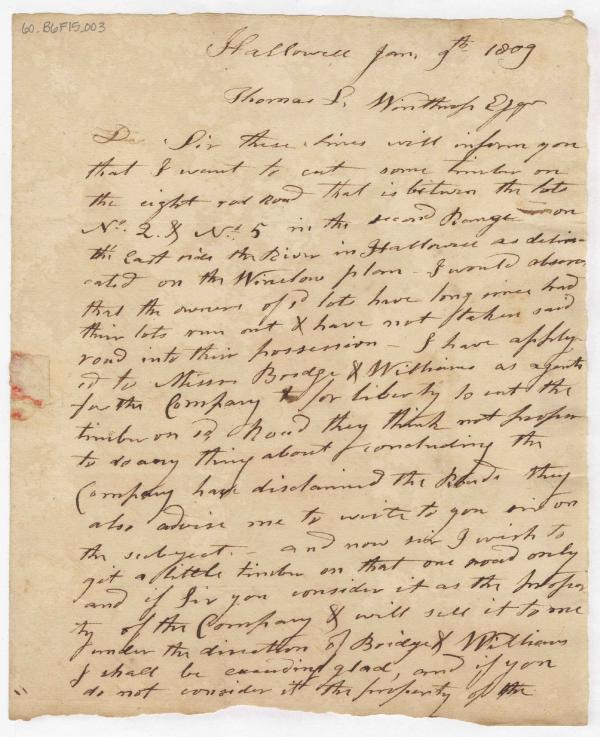 60_B6F15_003
Hallowell Jan. 9th 1809
Thomas L. Winthrop Esqr
Dr Sir these lines will inform you
that I want to cut some timber on
the eight rod Road that is between the lots
No. 2. & No. 5 in the second Range on
the East side the River in Hallowell as deline-
ated on the Winslow plan - I would observe
that the owners of sd lots have long since had
their lots run out & have not taken said
road into their possession - I have apply-
id to Messrs Bridge & Williams as agents
for the Company for liberty to cut the
timber on sd Road they think not proper
to do any thing about concluding the
Company have disclaimed the Roads they
also advise me to write to you sir on
the subject. - and now sir I wish to
git a little timber on that one road only
and if Sir you consider it as the proper
ty of the Company & will sell it to me
under the direction of Bridge & Williams
I shall be exceeding glad, and if you
do not consider it the property of the